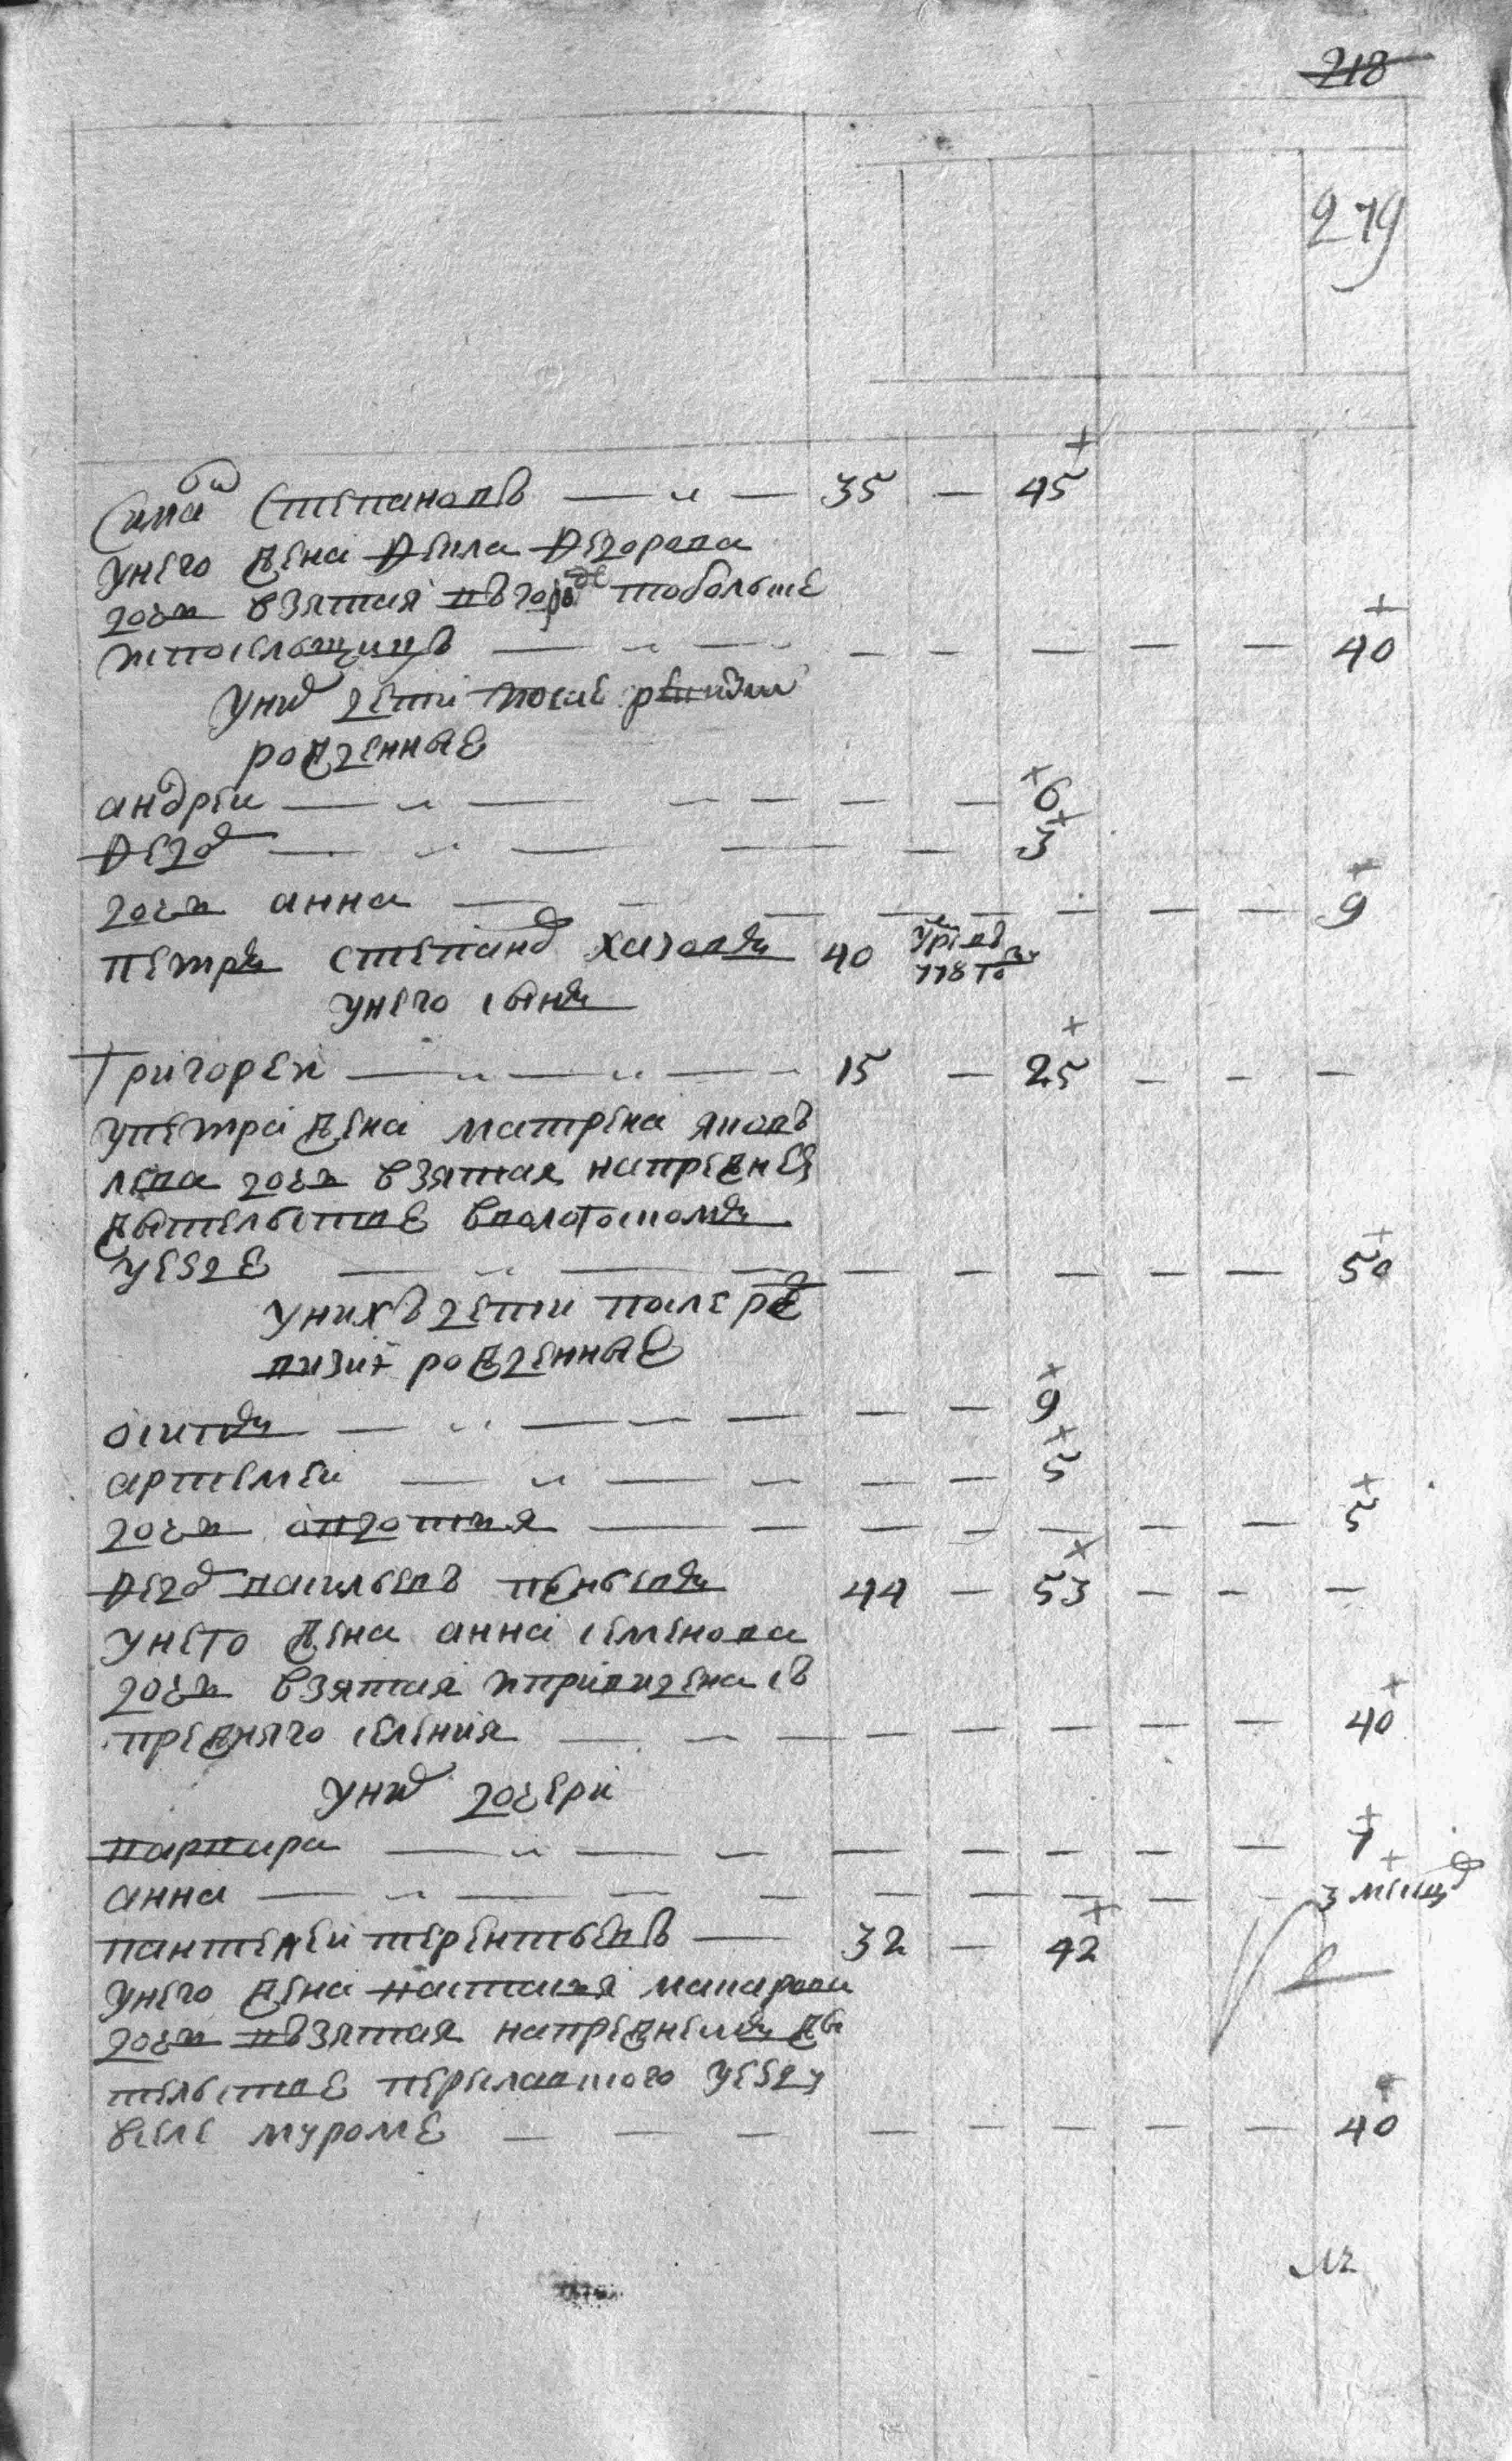 218
279
Степановъ — „ — 35 — 45
унего жена Фекла Федорова
дочь взятая въ городе тобольске
— — — — — — — 40
уних дети после ревизии
рожденные
андреи — „ — — — — — 6
Федор — „ — — — — 3
дочь анна — — — — — — — — 9
петръ степанов 40 умре въ 778 году
унего сынъ
Григорей — „ — „ — — 15 — 25 — — —
упетра жена матрена яков
лева дочь взятая напрежнем
жытельстве вволотоцкомъ
уезде — „ — — — — — — — 50
унихъ дети после ре
визии рожденные
осипъ — „ — — — — 9
артемеи — „ — — — — 5
дочь авдотья — — — — — — — 5
Федор васильевъ 44 — 53 — — —
унего жена анна семенова
дочь взятая исприведена съ
прежняго селения — — — — — — — — 40
уних дочери
варвара — „ — — — — — — — 7
анна — „ — — — — — — — 3 месяцов
пантелеи терентьевъ — 32 — 42
унего жена насталья макарова
дочь въ взятая напрежнемъ жы
тельстве переславского уезду
вселе муроме — — — — — — — — 40